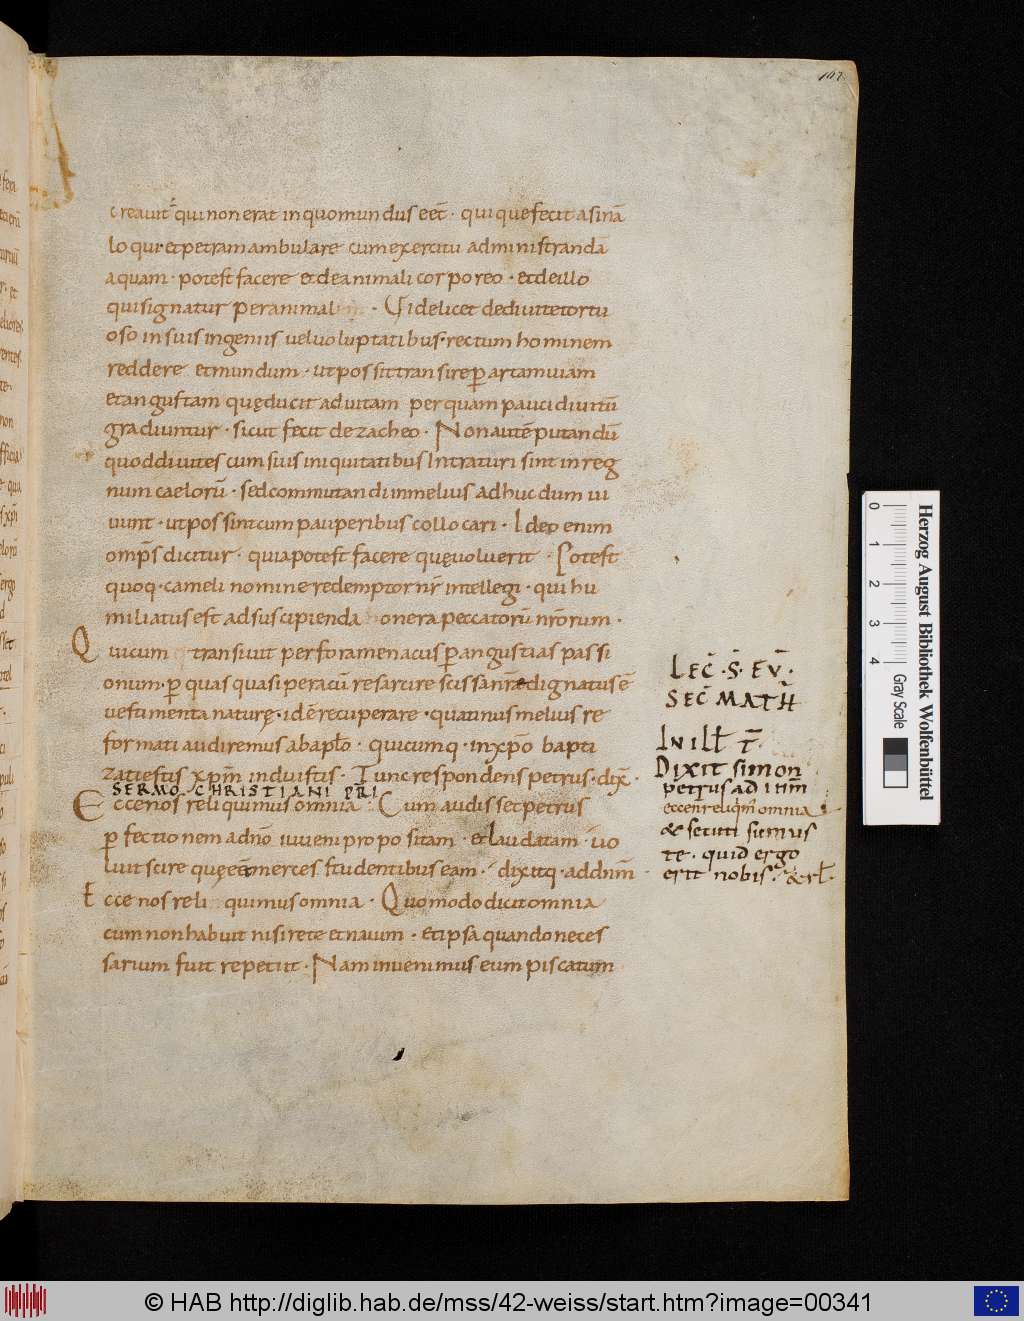 167
creauit qui non erat in quo mundus eēt · qui que fecit asinā
loqui et petram ambulare cum exercitu administrandā
aquam · potest facere et de animali corporeo · et de illo
qui significatur per animal · Videlicet de diuite tortu
oso in suis ingeniis uel uoluptatibus · rectum hominem
reddere et mundum · ut possit transire ꝑ artam uiam
et angustam quę ducit ad uitam per quam pauci diuitū
gradiuntur · sicut fecit de zacheo · Non autē putandū
quod diuites cum suis iniquitatibus Intraturi sint in reg
num caelorū · sed commutandi in melius adhuc dum ui
uunt · ut possint cum pauperibus collocari · Ideo enim
omps̄ dicitur · quia potest facere quę uoluerit · Potest
quoq · cameli nomine redemptor nr̄ intellegi · qui hu
miliatus est ad suscipienda onera peccatorū nr̄orum ·
Qui cum transiuit per foramen acus ꝑ angustias passi
onum · ꝑ quas quasi per acū resarcire scissa nr̄ę dignatus ē
uestimenta naturę · id ē recuperare · quatinus melius re
formati audiremus ab apło · quicumq · in xp̄o bapti
zati estis xpm̄ induistis · Tunc respondens petrus · dix̄ ·
SERMO CHRISTIANI PRI
Ecce nos reliquimus omnia : Cum audisset petrus
ꝑfectionem a dn̄o iuueni propositam · et laudatam · uo
luit scire quę eēt merces studentibus eam · dixitq · ad dnm̄ ·
Ecce nos reli quimus omnia · Quomodo dicit omnia
cum non habuit nisi rete et nauim · Et ipsa quando neces
sarium fuit repetiit · Nam inuenimus eum piscatum
LEC̄ · S̄ · EV̄ ·
SEC̄ MATH̄
IN ILŁ T̄ ·
Dixit simon
petrus ad ihm̄
ecce nr reliqm̄ omnia
& secuti sumus
te · quid ergo
erit nobis · & rł ·
Herzog August Bibliothek Wolfenbüttel
0 1 2 3 4 Gray Scale
© HAB http://diglib.hab.de/mss/42-weiss/start.htm?image=00341